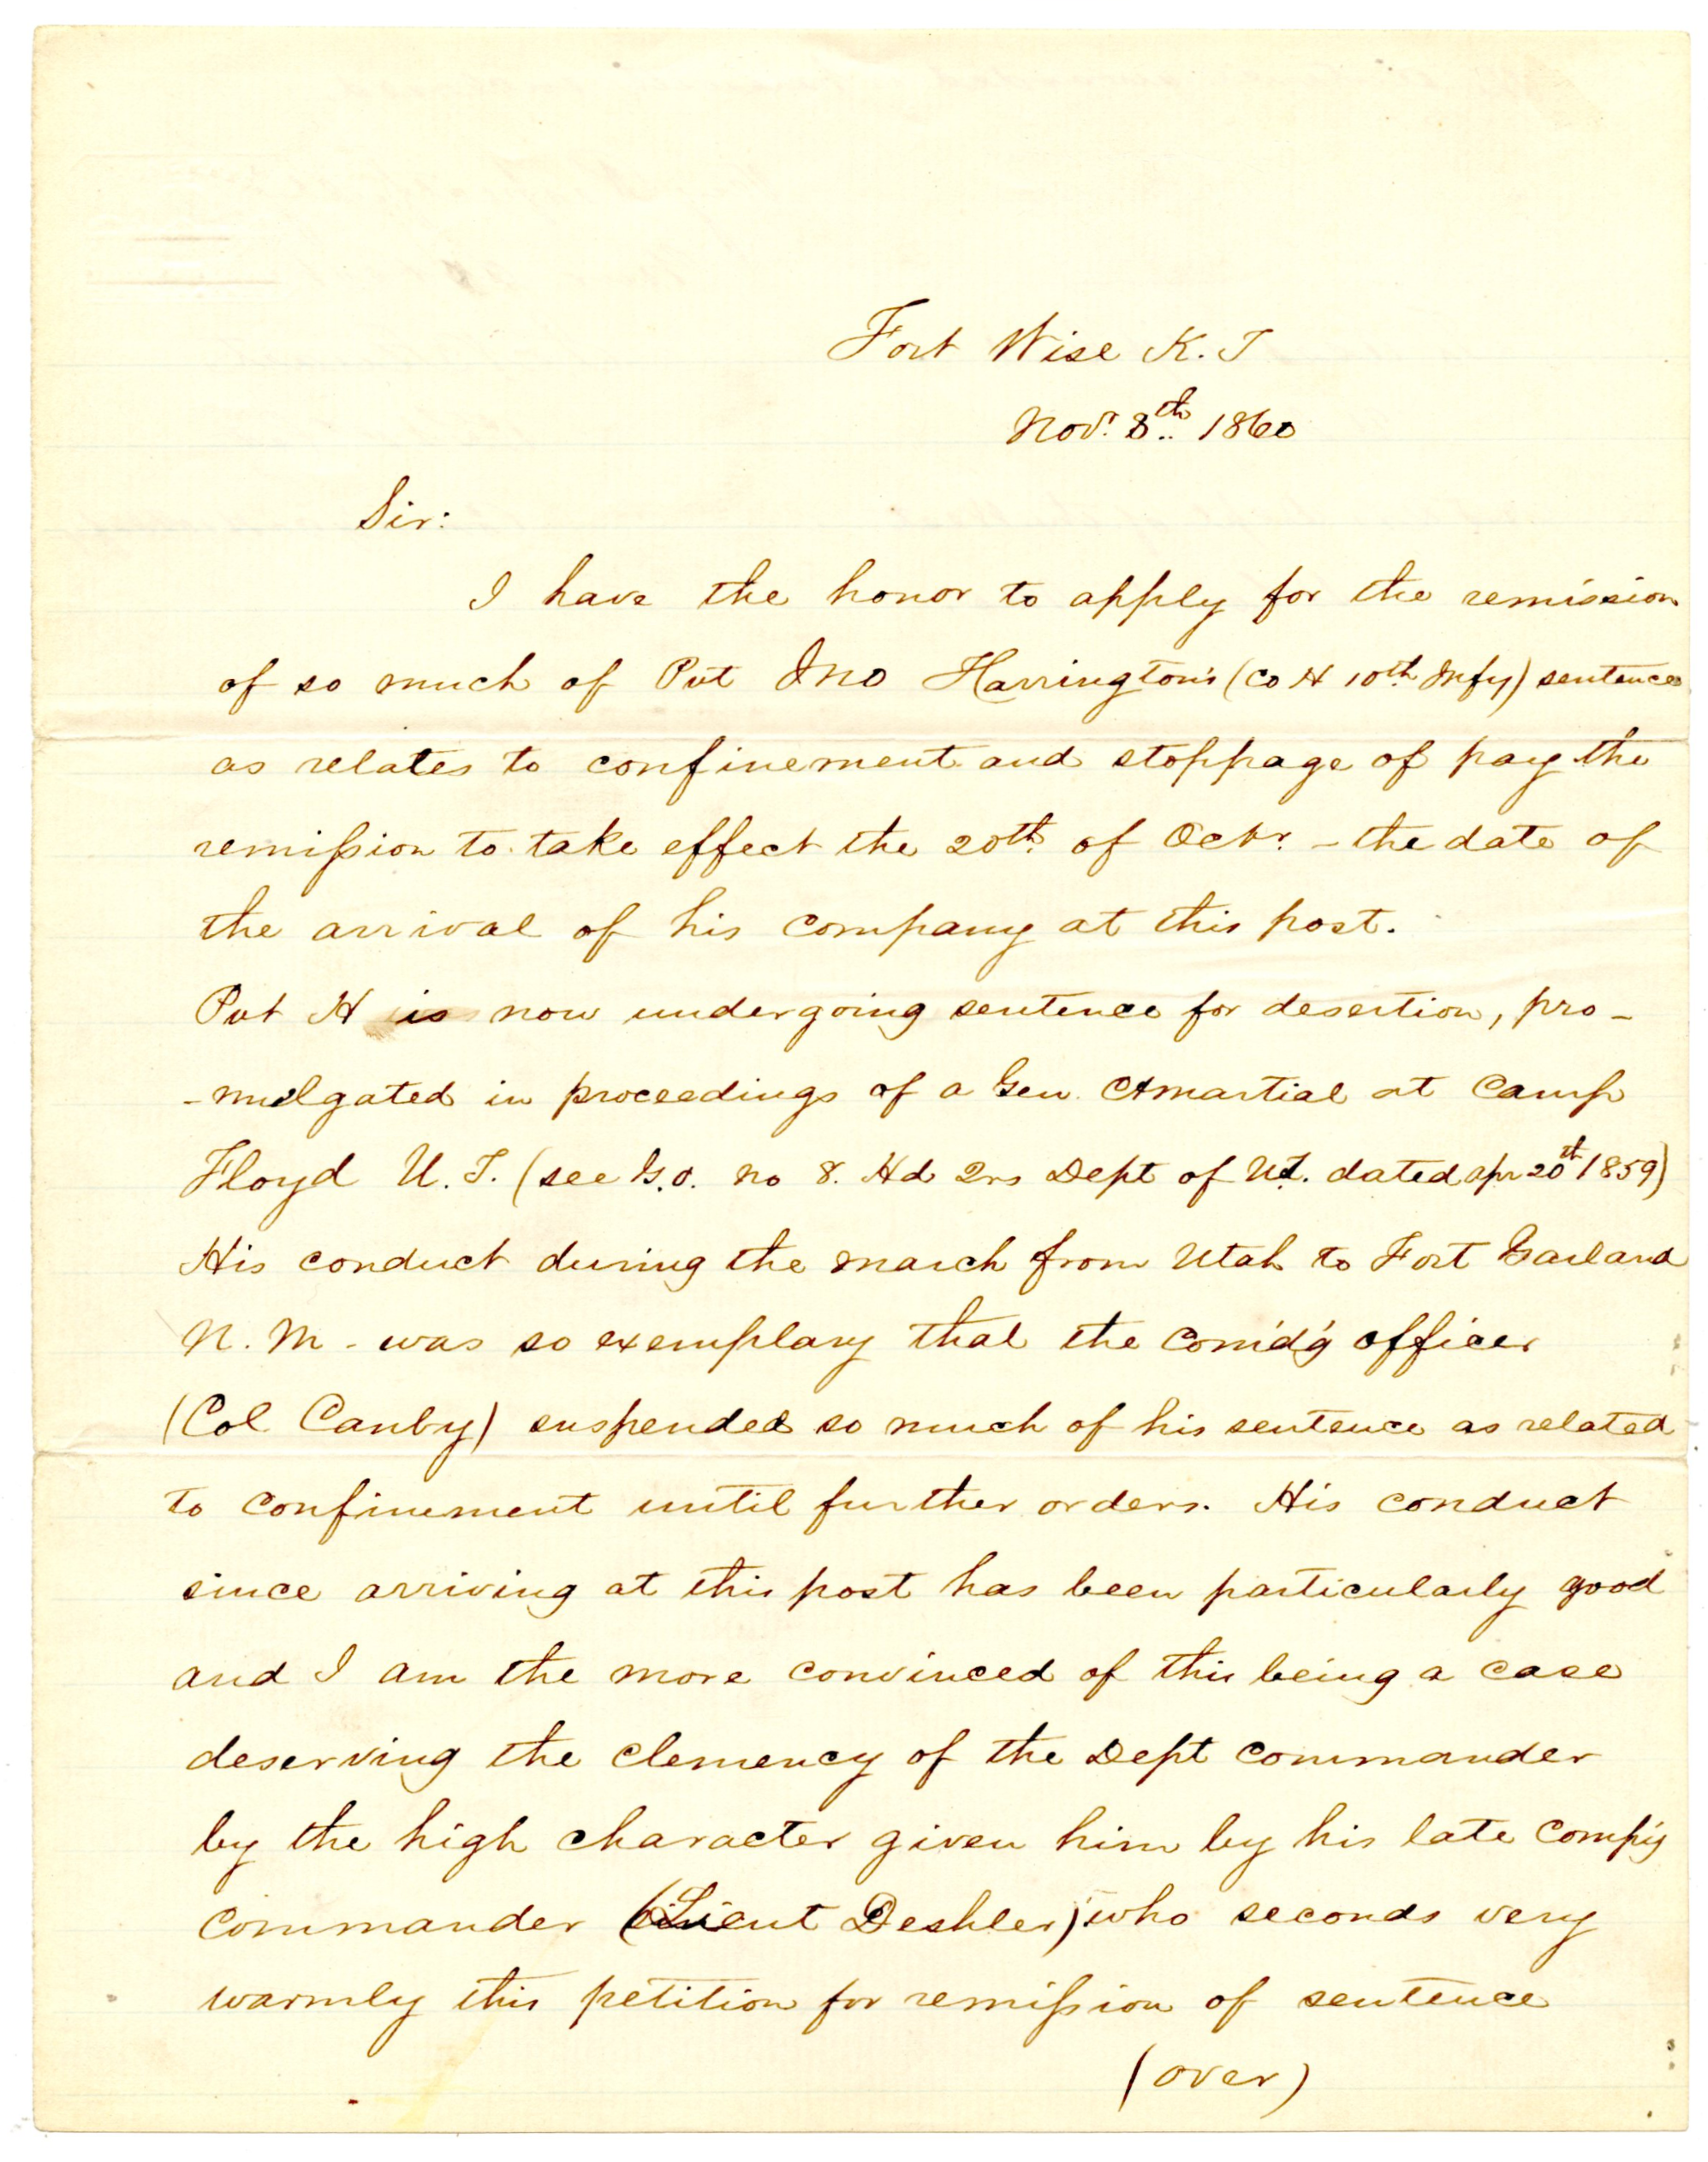 Fort Wise K. T
Nov. 8th 1860
Sir:
I have the honor to apply for the remission
of so much of Pvt Jno Harrington's (Co H 10th Infy) sentence
as relates to confinement and stoppage of pay the
remission to take effect the 20th of Octr. - the date of
the arrival of his company at this post.
Pvt H is now undergoing sentence for desertion, pro-
-mulgated in proceedings of a Gen. Ctmartial at Camp
Floyd U. T. (see G.O. no 8. Hd Qrs Dept of Ut. dated Apr 20th 1859)
His conduct during the march from Utah to Fort Garland
N. M - was so exemplary that the Com'd'g officer
(Col Canby) suspended so much of his sentence as related
to confinement until further orders. His conduct
since arriving at this post has been particularly good
and I am the more convinced of this being a case
deserving the clemency of the Dept commander
by the high character given him by his late Comp'y
commander (Lieut Deshler) who seconds very
warmly this petition for remission of sentence
(over)